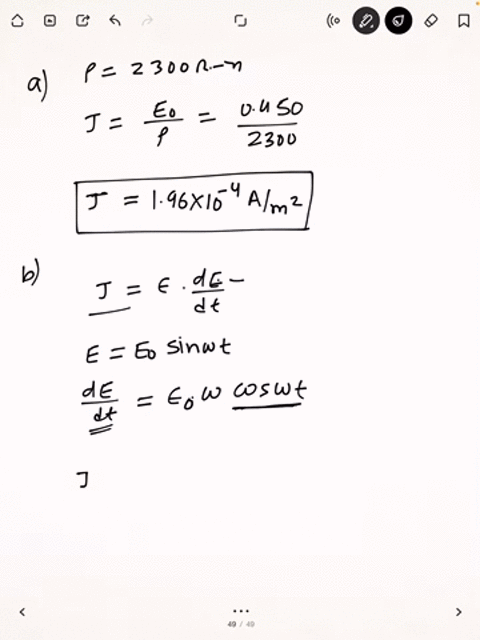 a) ρ = 2300Ω-m
J = E₀/ρ = 0.450/2300
J = 1.96×10⁻⁴ A/m²
b) J = ε · dE/dt
E = E₀ sinωt
dE/dt = E₀ ω cosωt
J
49 / 49